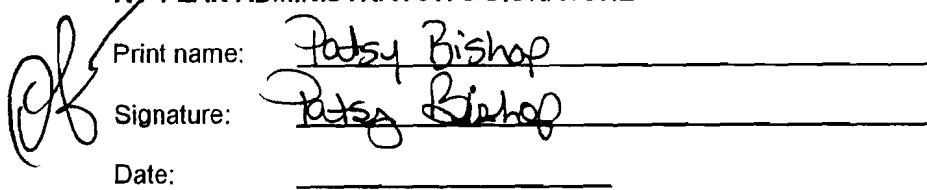 Print name: Patsy Bishop
Signature: Patsy Bishop
Date: